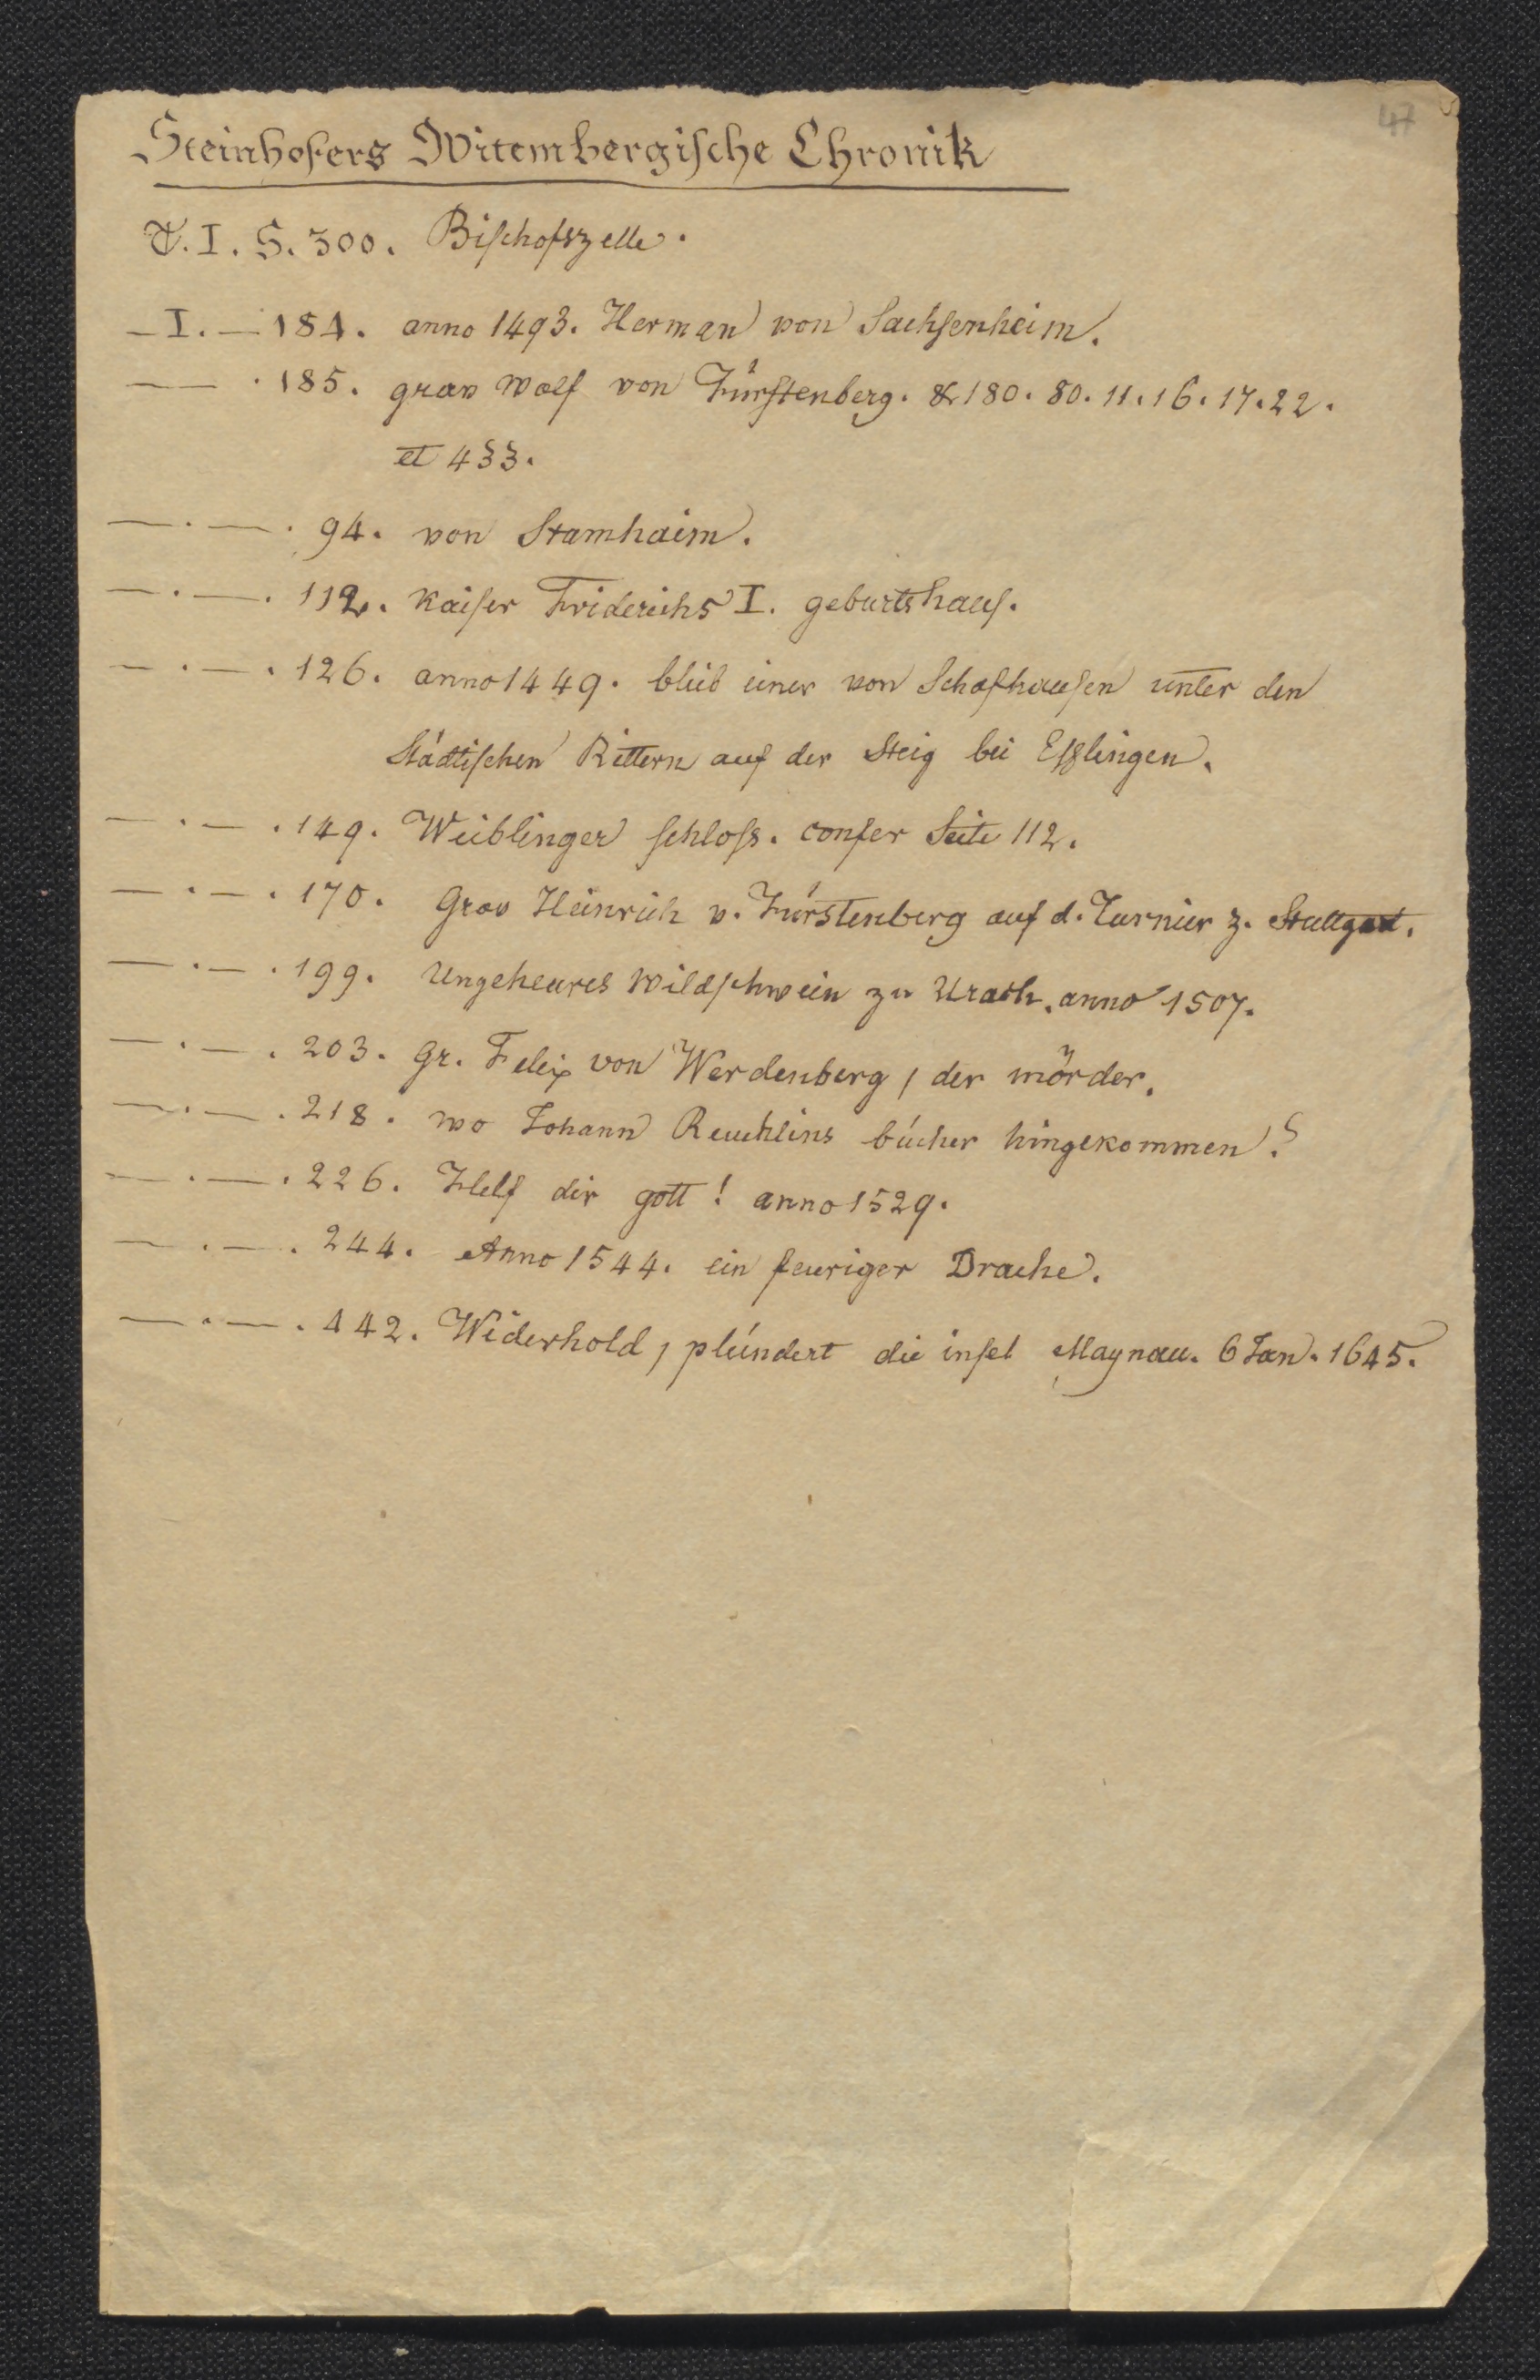 47
Steinhofers Witembergische Chronik
T. I. S. 300. Bischofszelle.
— I. — 184. anno 1493. Herman von Sachsenheim.
— — . 185. grav Wolf von Fürstenberg. & 180. 80. 11. 16. 17. 22.
et 433.
— . — . 94. von Stamhaim.
— . — . 112. Kaiser Friderichs I. geburtshaus.
— . — . 126. anno 1449. blieb einer von Schafhausen unter den
Städtischen Rittern auf der Steig bei Esslingen.
— . — . 149. Weiblinger schloss. confer Seite 112.
— . — . 170. Grav Heinrich v. Fürstenberg auf d. Turnier z. Stuttgart.
— . — . 199. Ungeheures Wildschwein zu Urach. anno 1507.
— . — . 203. gr. Felix von Werdenberg, der mörder.
— . — . 218. wo Johann Reuchlins bücher hingekommen?
— . — . 226. Helf dir gott! anno 1529.
— . — . 244. Anno 1544. ein feuriger Drache.
— . — . 442. Widerhold, plündert die insel Maynau. 6 Jan. 1645.